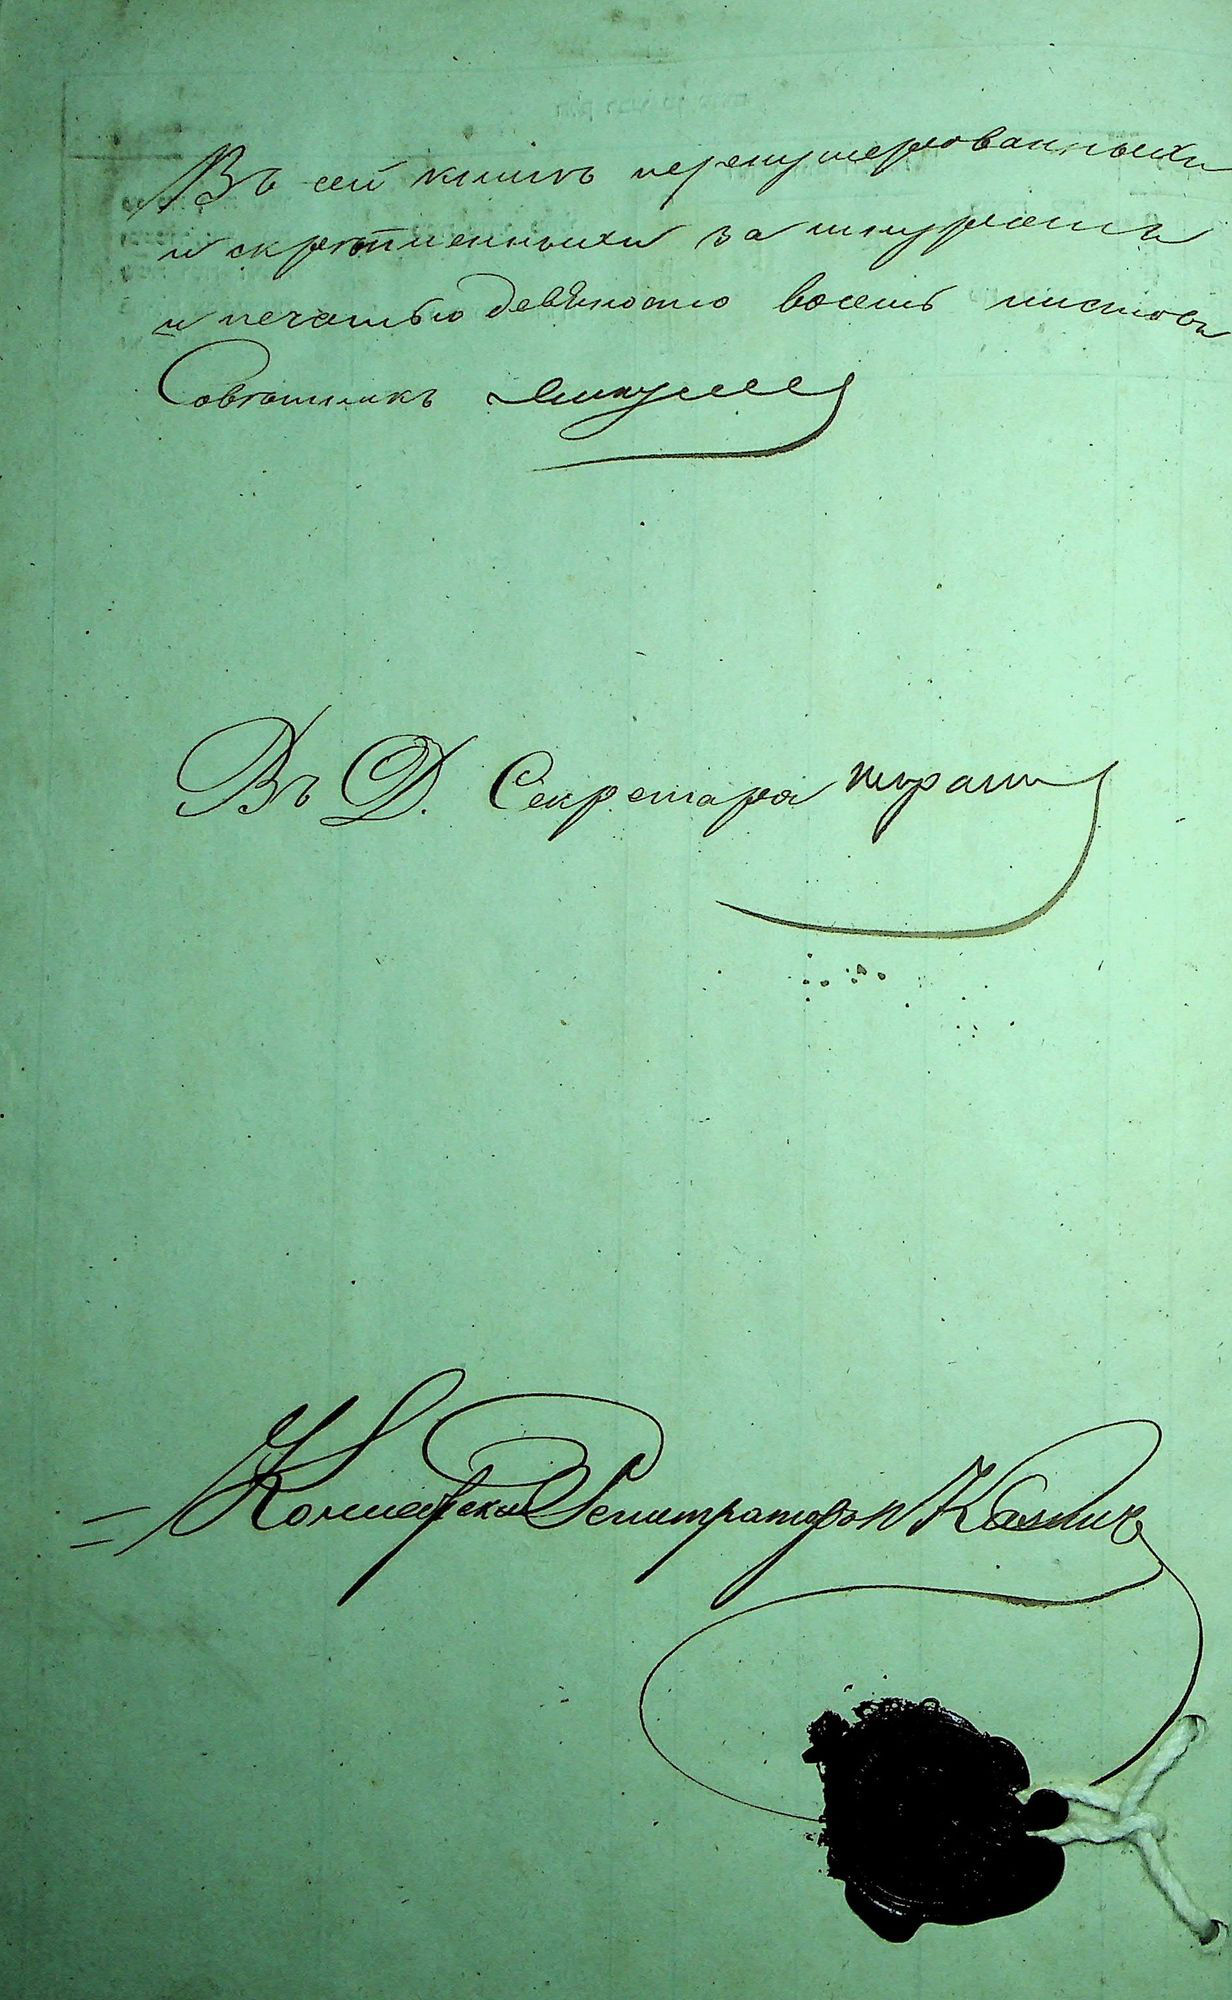 Въ сей книгѣ перенумерованныхъ
и скрѣпленныхъ за шнуромъ
и печатью девяносто восемь листовъ
Совѣтникъ
Въ Д. Секретаря
Коллежскій Регистраторъ